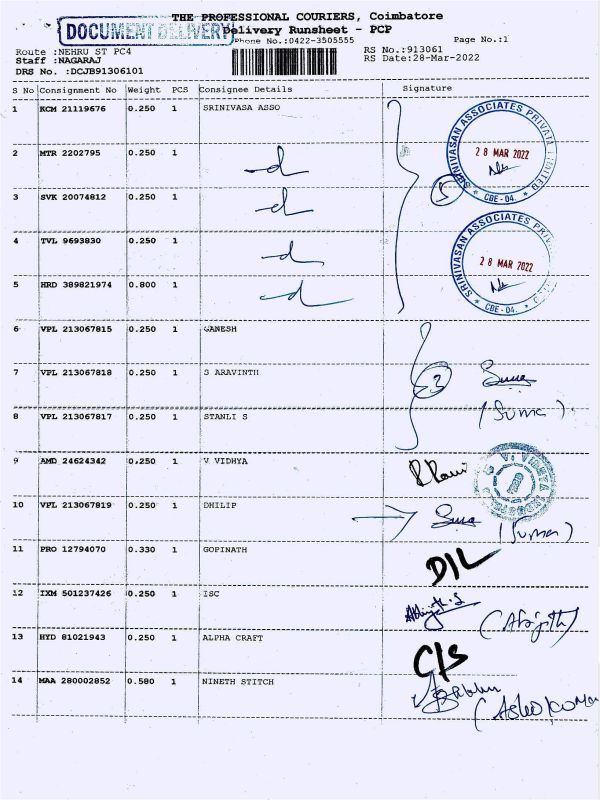 THE PROFESSIONAL COURIERS, Coimbatore
DOCUMENT DELIVERY
Delivery Runsheet - PCP
Phone No.:0422-3505555
Page No.:1
Route :NEHRU ST PC4
RS No.:913061
Staff :NAGARAJ
RS Date:28-Mar-2022
DRS No. :DCJB91306101
S No Consignment No Weight PCS Consignee Details Signature
1 KCM 21119676 0.250 1 SRINIVASA ASSO
SRINIVASAN ASSOCIATES PRIVATE LIMITED
28 MAR 2022
* CBE-04. *
2 MTR 2202795 0.250 1
3 SVK 20074812 0.250 1
5
4 TVL 9693830 0.250 1
SRINIVASAN ASSOCIATES
28 MAR 2022
* CBE-04. *
5 HRD 389821974 0.800 1
6 VPL 213067815 0.250 1 GANESH
7 VPL 213067818 0.250 1 S ARAVINTH
3
8 VPL 213067817 0.250 1 STANLI S
(Suma)
9 AMD 24624342 0.250 1 V VIDHYA
10 VPL 213067819 0.250 1 DHILIP
(Suma)
11 PRO 12794070 0.330 1 GOPINATH
D/L
12 IXM 501237426 0.250 1 ISC
(Abijith)
13 HYD 81021943 0.250 1 ALPHA CRAFT
C/S
14 MAA 280002852 0.580 1 NINETH STITCH